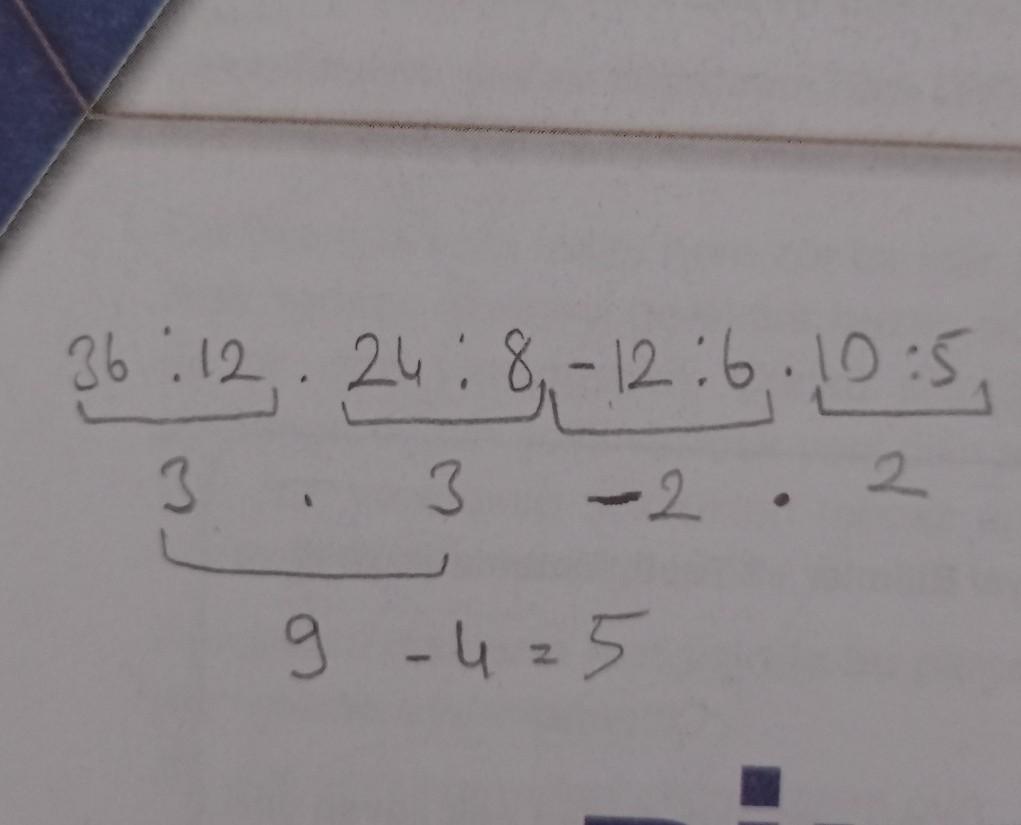 36 : 12 . 24 : 8 - 12 : 6 . 10 : 5
3 . 3 - 2 . 2
9 - 4 = 5